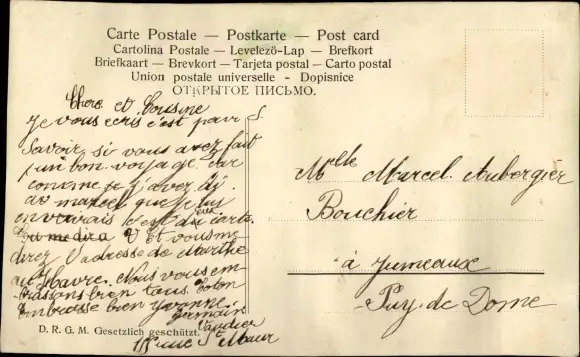 Carte Postale — Postkarte — Post card
Cartolina Postale — Levelezö-Lap — Brefkort
Briefkaart — Brevkort — Tarjeta postal — Carto postal
Union postale universelle - Dopisnice
ОТКРЫТОЕ ПИСЬМО.
Chere et Cousine
Je vous ecris c'est pour
Savoir si vous avez fait
un bon voyage car
comme je
marcel que je lus
enverrais
et vous me
direz l'adresse de Marthe
au Havre. Nous vous em
brassons bien tous
Embrasse bien Yvonne.
Germain
Vaudier
15 rue St Maur
D. R. G. M. Gesetzlich geschützt.
Mlle Marcel Aubergier
Bouchier
à Jumeaux
Puy-de Dome